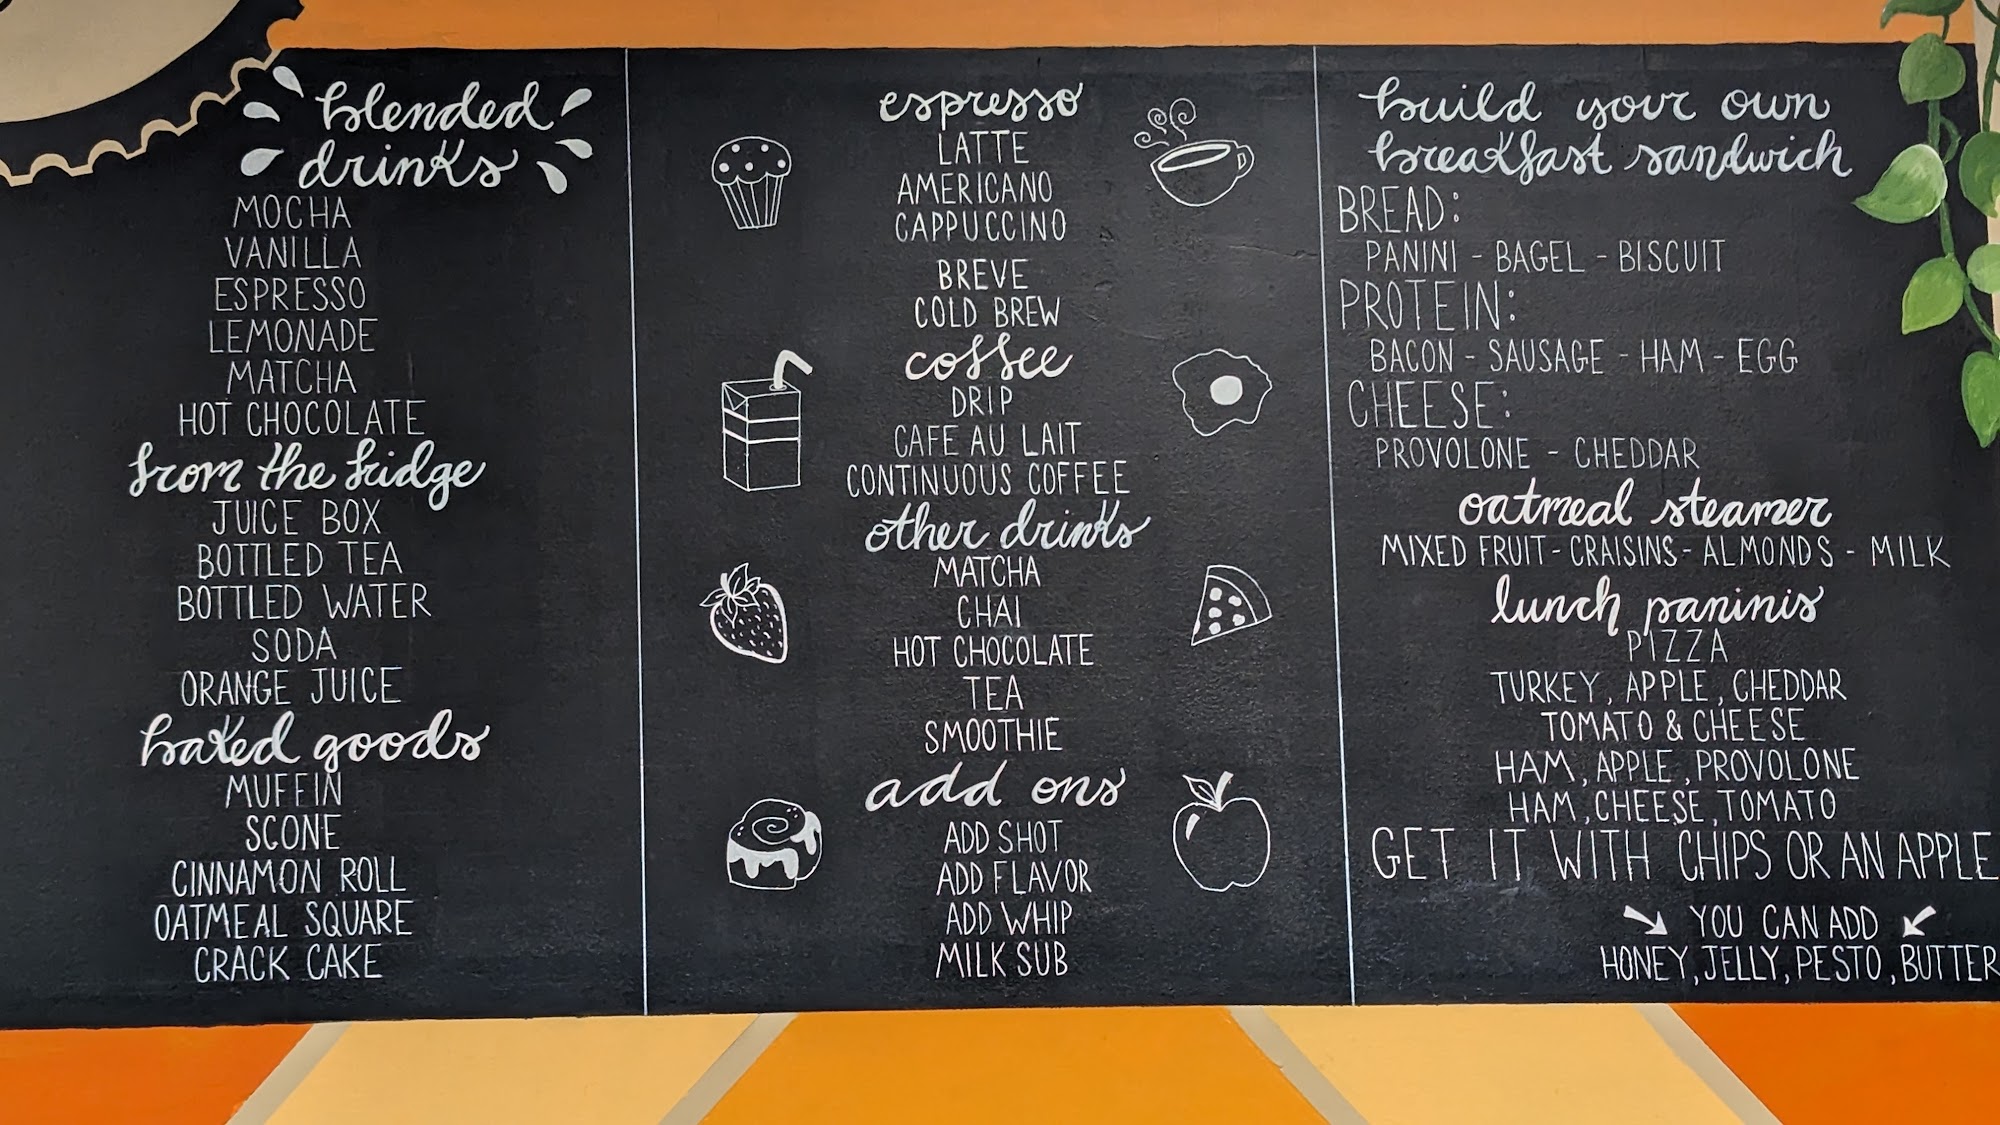 blended
drinks
MOCHA
VANILLA
ESPRESSO
LEMONADE
MATCHA
HOT CHOCOLATE
from the fridge
JUICE BOX
BOTTLED TEA
BOTTLED WATER
SODA
ORANGE JUICE
baked goods
MUFFIN
SCONE
CINNAMON ROLL
OATMEAL SQUARE
CRACK CAKE
espresso
LATTE
AMERICANO
CAPPUCCINO
BREVE
COLD BREW
coffee
DRIP
CAFE AU LAIT
CONTINUOUS COFFEE
other drinks
MATCHA
CHAI
HOT CHOCOLATE
TEA
SMOOTHIE
add ons
ADD SHOT
ADD FLAVOR
ADD WHIP
MILK SUB
build your own
breakfast sandwich
BREAD:
PANINI - BAGEL - BISCUIT
PROTEIN:
BACON - SAUSAGE - HAM - EGG
CHEESE:
PROVOLONE - CHEDDAR
oatmeal steamer
MIXED FRUIT - CRAISINS - ALMONDS - MILK
lunch paninis
PIZZA
TURKEY, APPLE, CHEDDAR
TOMATO & CHEESE
HAM, APPLE, PROVOLONE
HAM, CHEESE, TOMATO
GET IT WITH CHIPS OR AN APPLE
YOU CAN ADD
HONEY, JELLY, PESTO, BUTTER